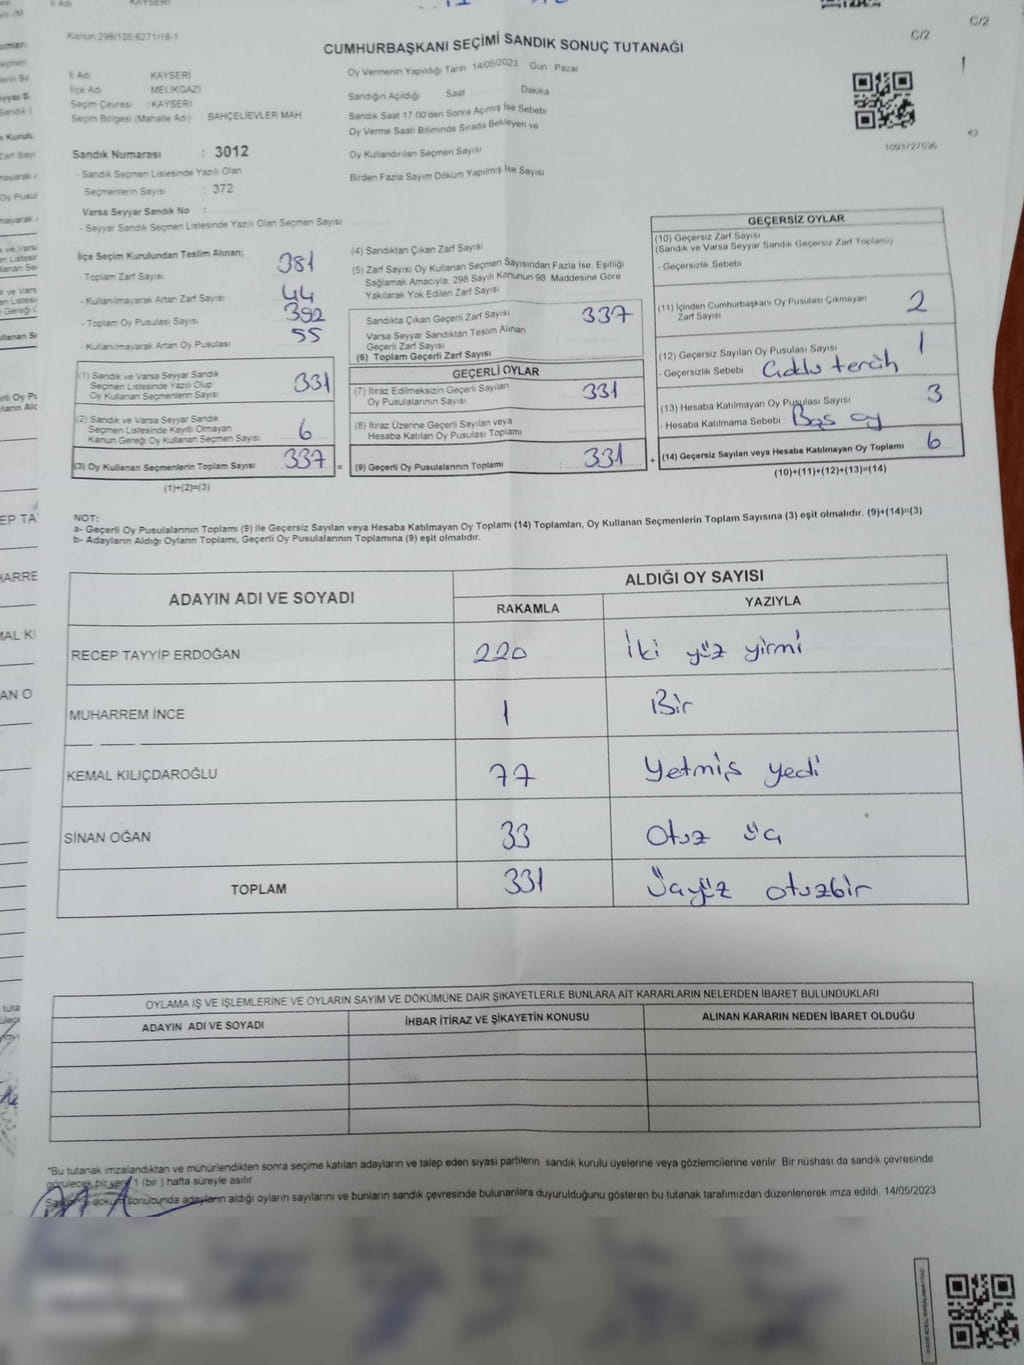 Kanun 298/105,6271/16-1
C/2
C/2
CUMHURBAŞKANI SEÇİMİ SANDIK SONUÇ TUTANAĞI
İl Adı KAYSERİ
İlçe Adı MELİKGAZİ
Seçim Çevresi : KAYSERİ
Seçim Bölgesi (Mahalle Adı) BAHÇELİEVLER MAH
Sandık Numarası : 3012
- Sandık Seçmen Listesinde Yazılı Olan
Seçmenlerin Sayısı : 372
Varsa Seyyar Sandık No :
- Seyyar Sandık Seçmen Listesinde Yazılı Olan Seçmen Sayısı
Oy Vermenin Yapıldığı Tarih 14/05/2023 Gün Pazar
Sandığın Açıldığı Saat Dakika
Sandık Saat 17.00'den Sonra Açılmış İse Sebebi
Oy Verme Saati Bitiminde Sırada Bekleyen ve
Oy Kullandırılan Seçmen Sayısı
Birden Fazla Sayım Döküm Yapılmış İse Sayısı
1093727536
43
İlçe Seçim Kurulundan Teslim Alınan;
- Toplam Zarf Sayısı 381
- Kullanılmayarak Artan Zarf Sayısı 44
- Toplam Oy Pusulası Sayısı 392
- Kullanılmayarak Artan Oy Pusulası 55
(1) Sandık ve Varsa Seyyar Sandık
Seçmen Listesinde Yazılı Olup
Oy Kullanan Seçmenlerin Sayısı 331
(2) Sandık ve Varsa Seyyar Sandık
Seçmen Listesinde Kayıtlı Olmayan
Kanun Gereği Oy Kullanan Seçmen Sayısı 6
(3) Oy Kullanan Seçmenlerin Toplam Sayısı 337 =
(1)+(2)=(3)
(4) Sandıktan Çıkan Zarf Sayısı
(5) Zarf Sayısı Oy Kullanan Seçmen Sayısından Fazla İse, Eşitliği
Sağlamak Amacıyla, 298 Sayılı Kanunun 98. Maddesine Göre
Yakılarak Yok Edilen Zarf Sayısı
Sandıkta Çıkan Geçerli Zarf Sayısı 337
Varsa Seyyar Sandıktan Teslim Alınan
Geçerli Zarf Sayısı
(6) Toplam Geçerli Zarf Sayısı
GEÇERLİ OYLAR
(7) İtiraz Edilmeksizin Geçerli Sayılan
Oy Pusulalarının Sayısı 331
(8) İtiraz Üzerine Geçerli Sayılan veya
Hesaba Katılan Oy Pusulası Toplamı
(9) Geçerli Oy Pusulalarının Toplamı : 331 +
GEÇERSİZ OYLAR
(10) Geçersiz Zarf Sayısı
(Sandık ve Varsa Seyyar Sandık Geçersiz Zarf Toplamı)
- Geçersizlik Sebebi
(11) İçinden Cumhurbaşkanı Oy Pusulası Çıkmayan
Zarf Sayısı 2
(12) Geçersiz Sayılan Oy Pusulası Sayısı 1
- Geçersizlik Sebebi Çoklu tercih
(13) Hesaba Katılmayan Oy Pusulası Sayısı 3
- Hesaba Katılmama Sebebi Boş oy
(14) Geçersiz Sayılan veya Hesaba Katılmayan Oy Toplamı 6
(10)+(11)+(12)+(13)=(14)
NOT:
a- Geçerli Oy Pusulalarının Toplamı (9) ile Geçersiz Sayılan veya Hesaba Katılmayan Oy Toplamı (14) Toplamları, Oy Kullanan Seçmenlerin Toplam Sayısına (3) eşit olmalıdır. (9)+(14)=(3)
b- Adayların Aldığı Oyların Toplamı, Geçerli Oy Pusulalarının Toplamına (9) eşit olmalıdır.
ADAYIN ADI VE SOYADI
ALDIĞI OY SAYISI
RAKAMLA YAZIYLA
RECEP TAYYİP ERDOĞAN 220 İki yüz yirmi
MUHARREM İNCE 1 Bir
KEMAL KILIÇDAROĞLU 77 Yetmiş yedi
SİNAN OĞAN 33 Otuz üç
TOPLAM 331 Üçyüz otuzbir
OYLAMA İŞ VE İŞLEMLERİNE VE OYLARIN SAYIM VE DÖKÜMÜNE DAİR ŞİKAYETLERLE BUNLARA AİT KARARLARIN NELERDEN İBARET BULUNDUKLARI
ADAYIN ADI VE SOYADI İHBAR İTİRAZ VE ŞİKAYETİN KONUSU ALINAN KARARIN NEDEN İBARET OLDUĞU
*Bu tutanak imzalandıktan ve mühürlendikten sonra seçime katılan adayların ve talep eden siyasi partilerin sandık kurulu üyelerine veya gözlemcilerine verilir. Bir nüshası da sandık çevresinde
görülecek bir yere 1 (bir ) hafta süreyle asılır
dökümü sonucunda adayların aldığı oyların sayılarını ve bunların sandık çevresinde bulunanlara duyurulduğunu gösteren bu tutanak tarafımızdan düzenlenerek imza edildi. 14/05/2023